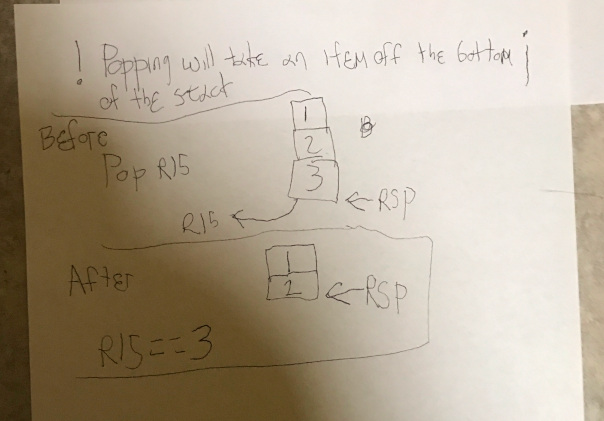 ! Popping will take an item off the bottom !
of the stack
Before
1
2
3
Pop R15
R15 ← ← RSP
After
1
2 ← RSP
R15 == 3